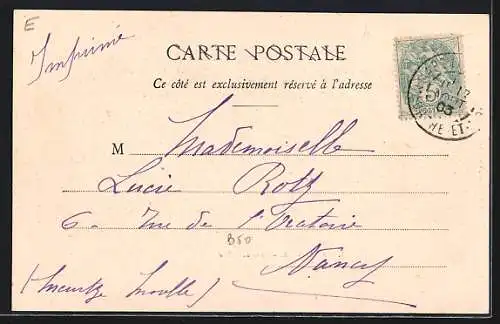 E
Imprimé
CARTE POSTALE
Ce côté est exclusivement réservé à l'adresse
M Mademoiselle
Lucie Roltz
6 - Rue de l'Oratoire
B50
Nancy
(Meurthe Moselle)
5
12
03
NE ET-